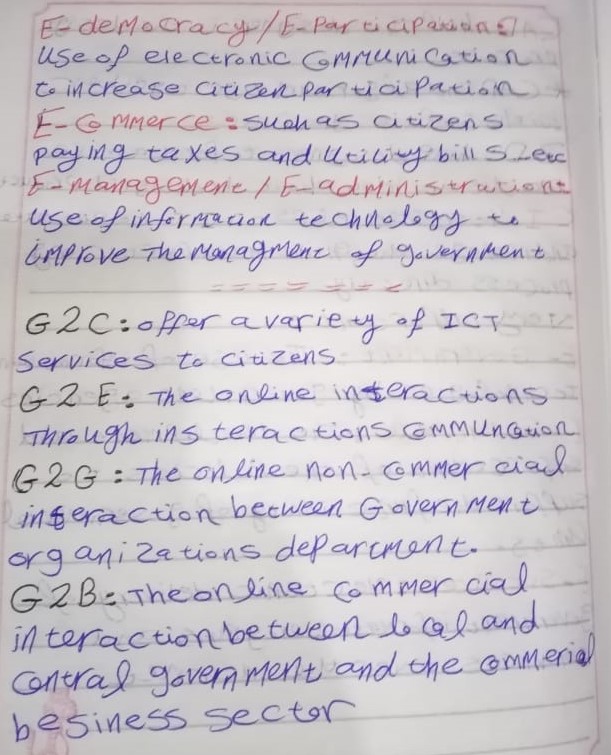 E-deMocracy/E-Participation:
Use of electronic Communication
to increase citizen participation
E-Commerce: such as citizens
paying taxes and utility bills etc
E-management/E-administration:
Use of information technology to
improve The managment of government
G2C: offer a variety of ICT
Services to citizens
G2E: The online interactions
Through ins teractions Communcation
G2G: The online non-commercial
interaction between Government
organizations department.
G2B: The online commercial
interaction between local and
contral government and the commerial
besiness sector